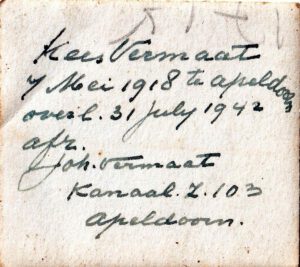 Kees Vermaat
7 Mei 1918 te Apeldoorn
overl. 31 July 1942
afz.
Joh. Vermaat
Kanaal. Z. 103
Apeldoorn.